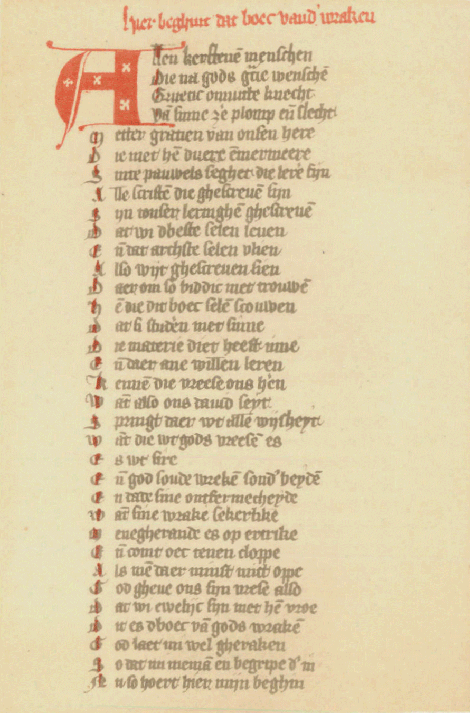 Hier beghint dat boec vand' wraken
Allen kerstenē menschen
Die na gods grīe wenschē
Gruetic onnutte knecht
Vā sinne ze plomp eñ slecht
Metter gratien van onsen here
Die met hē duere ēmermeere
Sinte pauwels seghet die lere sijn
Alle scriftē die ghescreuē sijn
Sijn tonser leringhē ghescreuē
Dat wi dbeste selen leuen
Eñ dat archste selen vlien
Also wijt ghescreuen sien
Daer om so biddic met trouwē
Hē die dit boec selē scouwen
Dat si studēn met sinne
Die materie dier heeft inne
Eñ daer ane willen leren
Kennē die vreese ons hēn
Wāt also ons dauid seyt
Springt daer wt alle wijsheyt
Wāt die wt gods vreesē es
Es wt sire
Eñ god soude wrekē sond' beydē
En dade sine ontfermecheyde
Wāt sine wrake sekerlike
Nenegherande es op ertrike
Eñ comt oec tenen cloppe
Als mē daer minst mict oppe
God gheue ons sijn vrese also
Dat wi ewelijc sijn met hē vroe
Dit es dboec vā gods wrakē
God laet mi wel gheraken
So dat mi niemā en begripe d' in
Nu so hoert hier mijn beghin